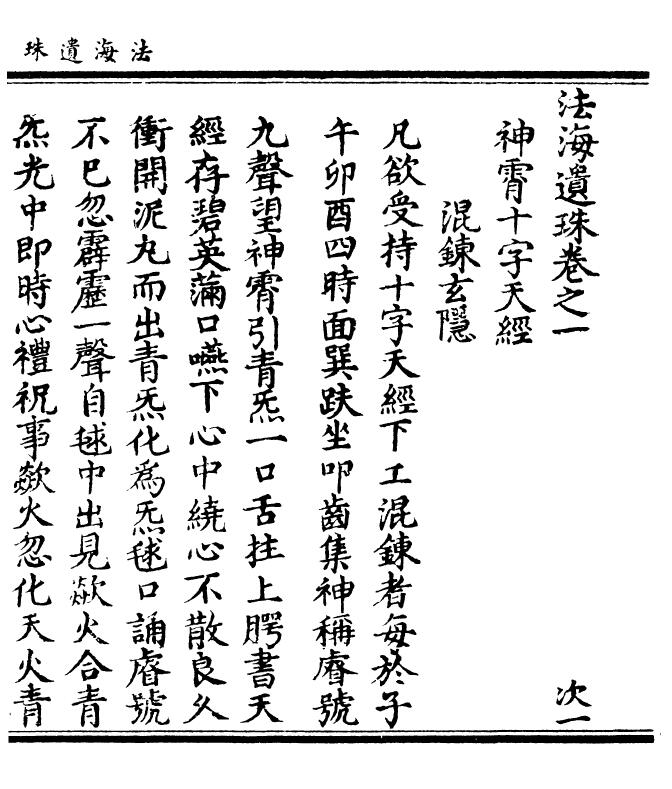 法海遺珠
法海遺珠卷之一
次一
神霄十字天經
混鍊玄隱
凡欲受持十字天經下工混鍊者每於子
午卯酉四時面巽趺坐叩齒集神稱睿號
九聲望神霄引青炁一口舌拄上腭書天
經存碧英滿口嚥下心中繞心不散良久
衝開泥丸而出青炁化為炁毬口誦睿號
不已忽霹靂一聲自毬中出見歘火合青
炁光中即時心禮祝事歘火忽化天火青